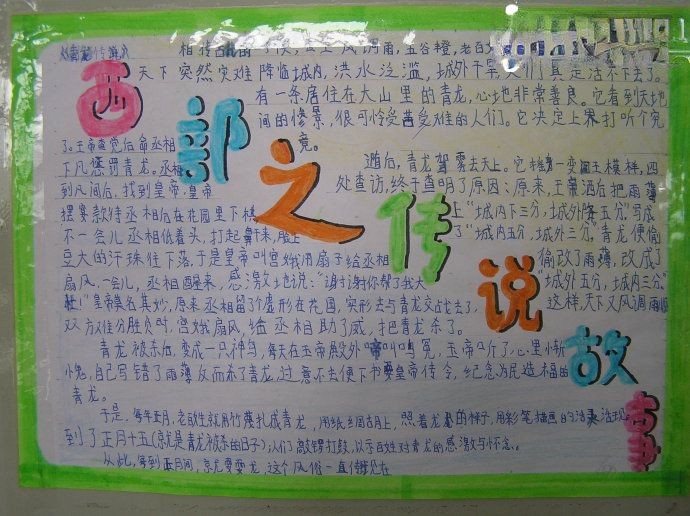 《青龙传说》
西部之传说故事
相传古时的时候，世上风调雨，五谷橙，老百
天下突然灾难降临城内，洪水泛滥，城外干旱，人们真是活不下去了。
有一条居住在大山里的青龙，心地非常善良。它看到天地
间的惨景，很可怜受苦受难的人们。它决定上界打听个究
竟。
遁后，青龙驾雾去天上。它摇身一变阎王模样，四
处查访，终于查明了原因：原来，玉帝酒后把雨薄
上"城内下三分，城外降五分"写成
了"城内五分，城外三分"。青龙便偷
偷改了雨薄，改成了
"城外五分，城内三分"
这样，天下又风调雨顺
了。玉帝查觉后命丞相
下凡惩罚青龙，丞相
到凡间后，找到皇帝，皇帝
摆宴款待丞相后在花园里下棋
不一会儿丞相低着头，打起鼾来，脸上
豆大的汗珠往下落，于是皇帝叫宫娥用扇子给丞相
扇风，一会儿，丞相醒来，感激地说："谢谢你帮了我大
皇帝莫名其妙，原来丞相留个虚形在花园，实形去与青龙交战去了，
双方难分胜负时，宫娥扇风，给丞相助了威，把青龙杀了。
青龙被杀后，变成一只神鸟，每天在玉帝殿外啼叫鸣冤，玉帝听了，心里
小鬼，自己写错了雨薄反而杀了青龙，过意不去便下书要皇帝传令，纪念为民造福的
青龙。
于是，每年正月，老百姓就用竹篾扎成青龙，用纸糊上，照着龙的样子，用彩笔描画的活灵活现，
到了正月十五(就是青龙被杀的日子)；人们敲锣打鼓，以示百姓对青龙的感激与怀念。
从此，每到正月间，就龙要耍龙，这个风俗一直传到现在